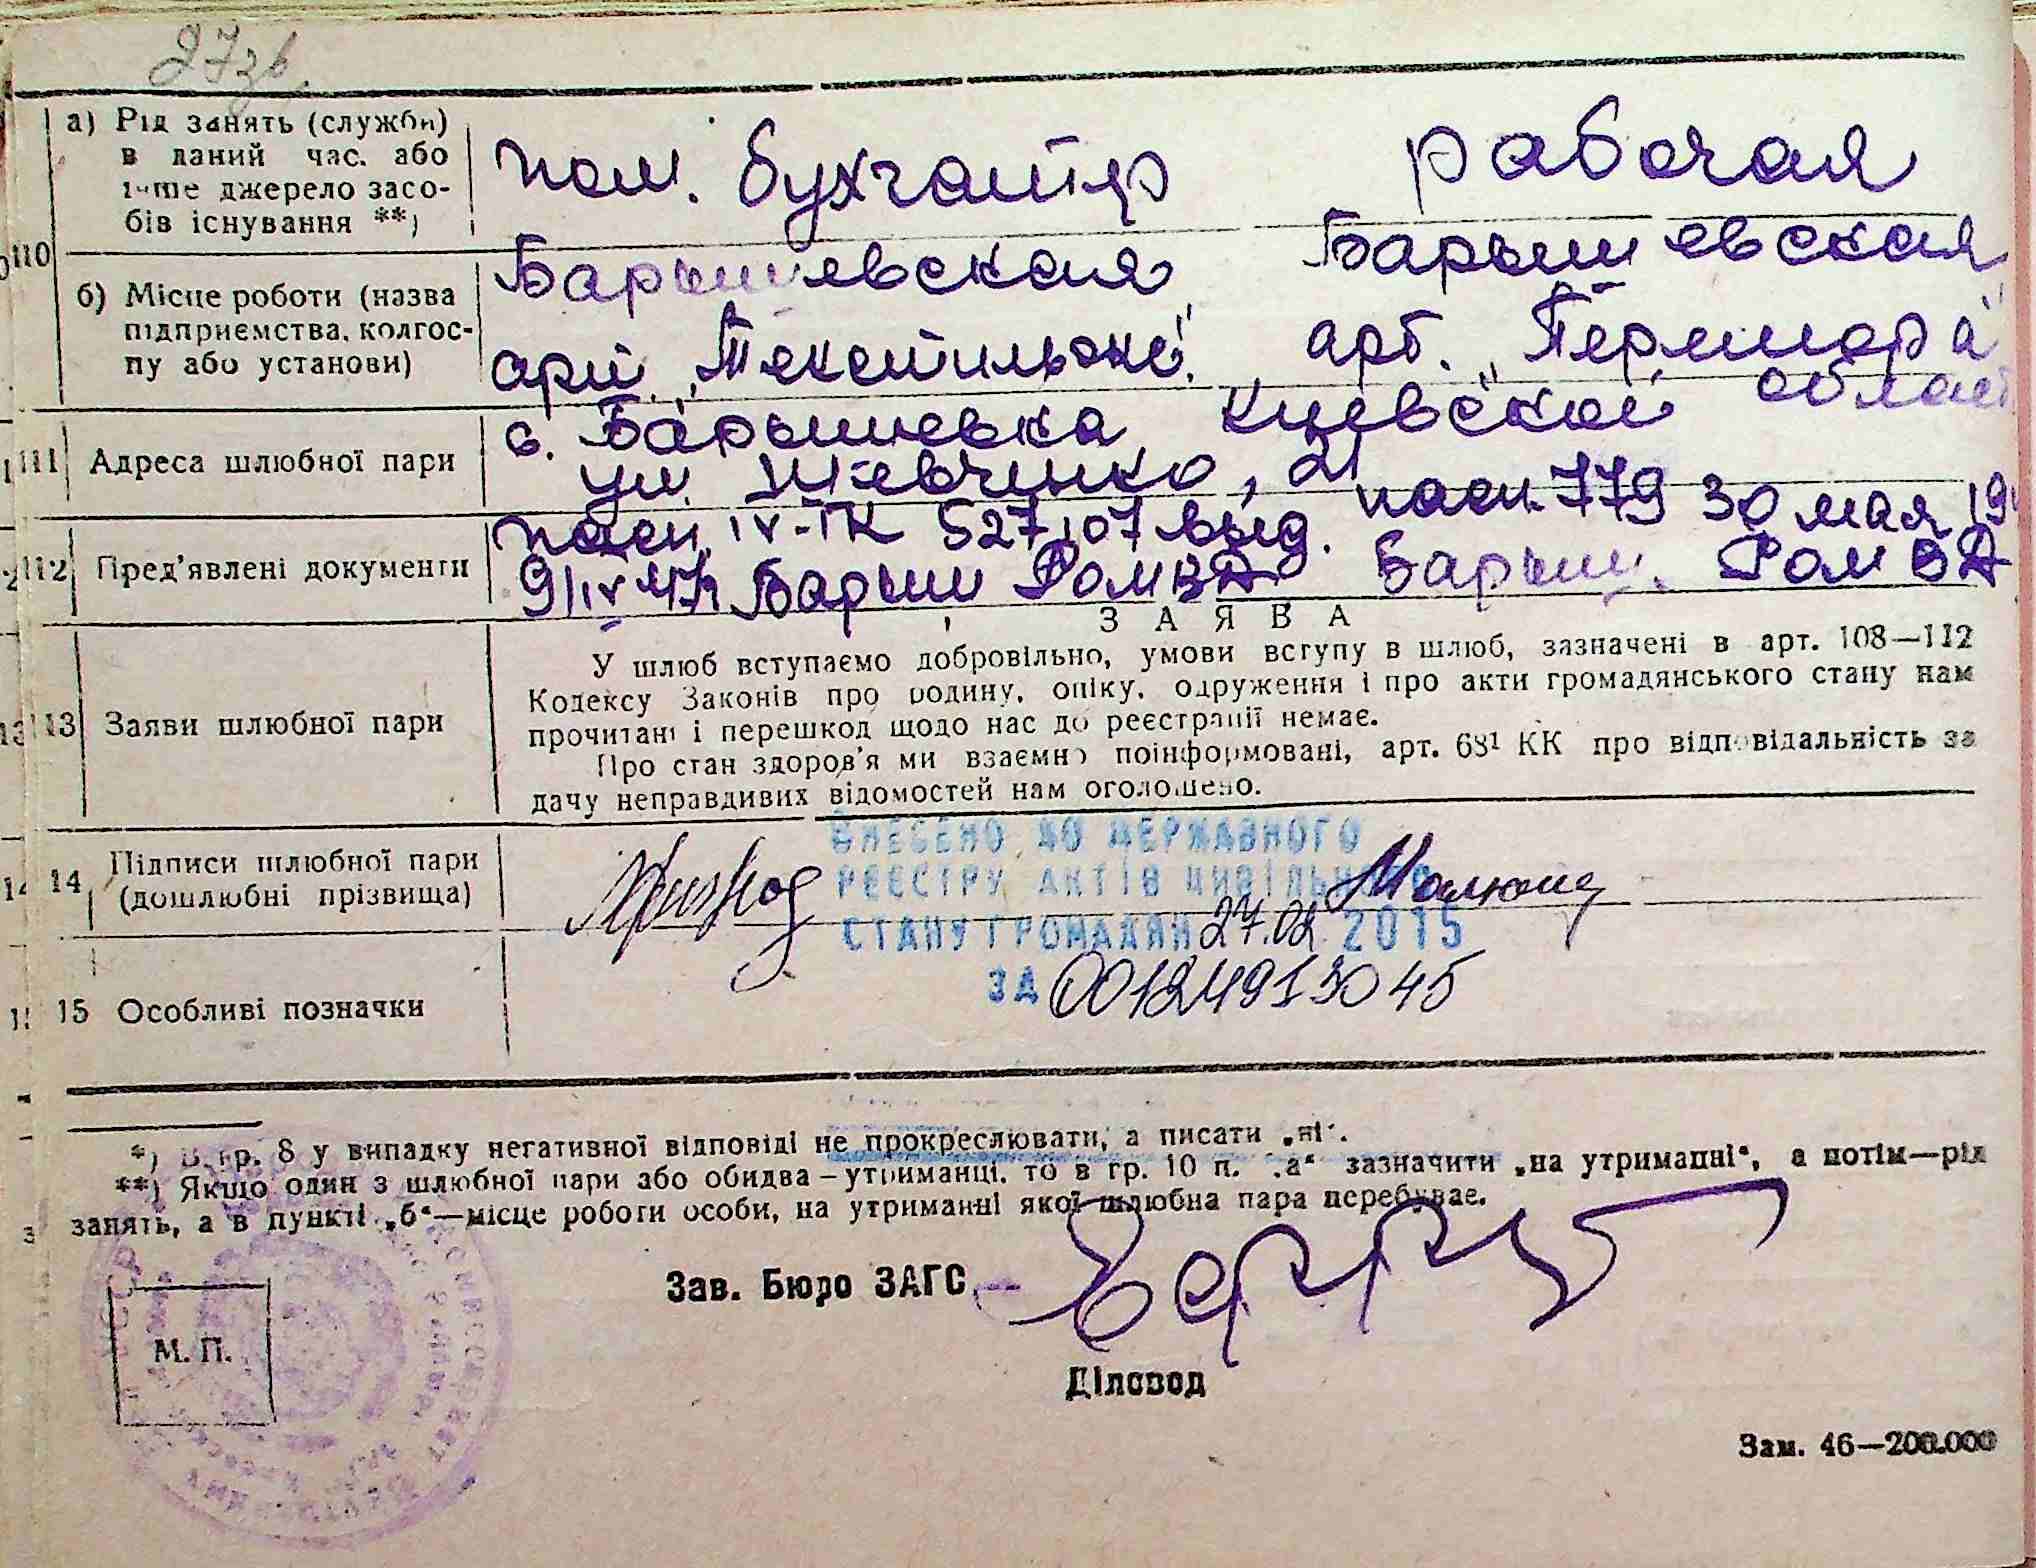 27зв.
а) Рід занять (служби) в даний час. або інше джерело засобів існування **)
пом. бухгалтер
рабочая
10
б) Місце роботи (назва підприємства, колгоспу або установи)
Барышевская арт. „Текстильник"
Барышевская арт. „Перемога"
11 Адреса шлюбної пари
с. Барышевка Киевской област
ул. Шевченко, 21
12 Пред'явлені документи
пасп. IV-ТК 527107 выд. 9/IV 47г Барыш РОМВД
пасп. 779 30 мая 19 Барыш. РОМВД
З А Я В А
13 Заяви шлюбної пари
У шлюб вступаємо добровільно, умови вступу в шлюб, зазначені в арт. 108—112
Кодексу Законів про родину, опіку, одруження і про акти громадянського стану нам
прочитані і перешкод щодо нас до реєстрації немає.
Про стан здоров'я ми взаємно поінформовані, арт. 68¹ КК про відповідальність за
дачу неправдивих відомостей нам оголошено.
14 Підписи шлюбної пари (дошлюбні прізвища)
ВНЕСЕНО ДО ДЕРЖАВНОГО
РЕЄСТРУ АКТІВ ЦИВІЛЬНОГО
СТАНУ ГРОМАДЯН 27.02 2015
ЗА 00124913045
15 Особливі позначки
*) В гр. 8 у випадку негативної відповіді не прокреслювати, а писати „ні".
**) Якщо один з шлюбної пари або обидва – утриманці, то в гр. 10 п. „а" зазначити „на утриманні", а потім—рід
занять, а в пункті „б"—місце роботи особи, на утриманні якої шлюбна пара перебуває.
Зав. Бюро ЗАГС
М. П.
Діловод
Зам. 46—200.000